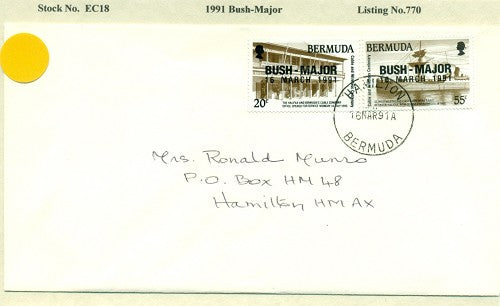 Stock No. EC18 1991 Bush-Major Listing No.770
BERMUDA
BUSH-MAJOR
16 MARCH 1991
20¢
BERMUDA
BUSH-MAJOR
16 MARCH 1991
55¢
HAMILTON
16MAR91A
BERMUDA
Mrs. Ronald Munro
P.O. Box HM 48
Hamilton HM AX